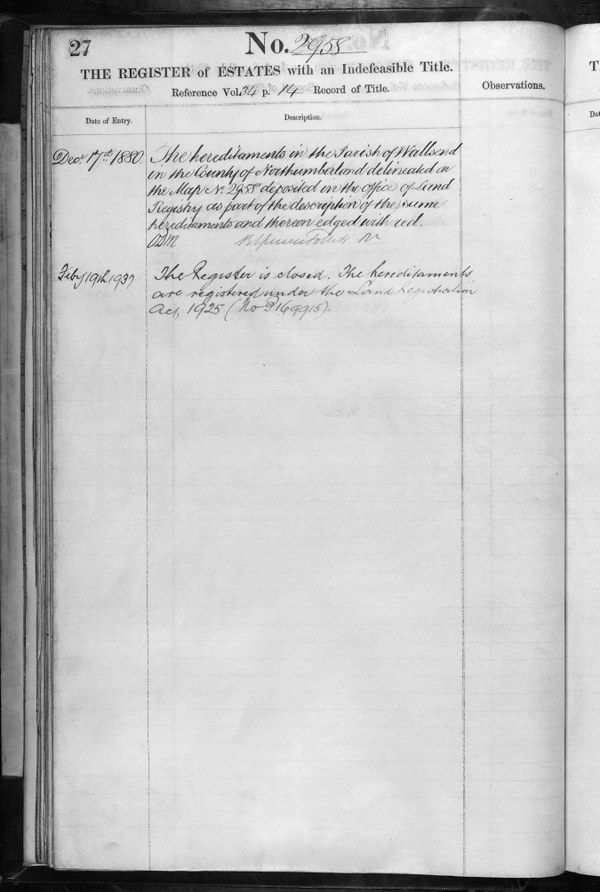 27
No. 2958
THE REGISTER of ESTATES with an Indefeasible Title.
Reference Vol. 34 p. 14 Record of Title.
Observations.
Date of Entry.
Description.
Decr 17th 1880
The hereditaments in the Parish of Wallsend
in the County of Northumberland delineated in
the Map No. 2958 deposited in the office of Land
Registry as part of the description of the same
hereditaments and thereon edged with red.
Feby 19th 1937
The Register is closed. The hereditaments
are registered under the Land Registration
Act, 1925 (No P169915).